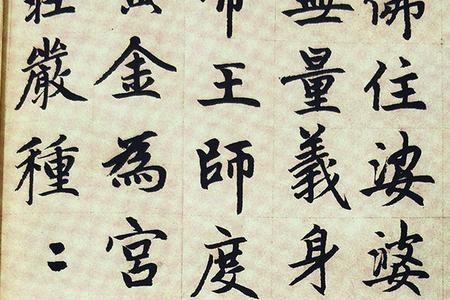 佛住娑婆
無量義身
帝王師度
黄金為宮
莊嚴種〻